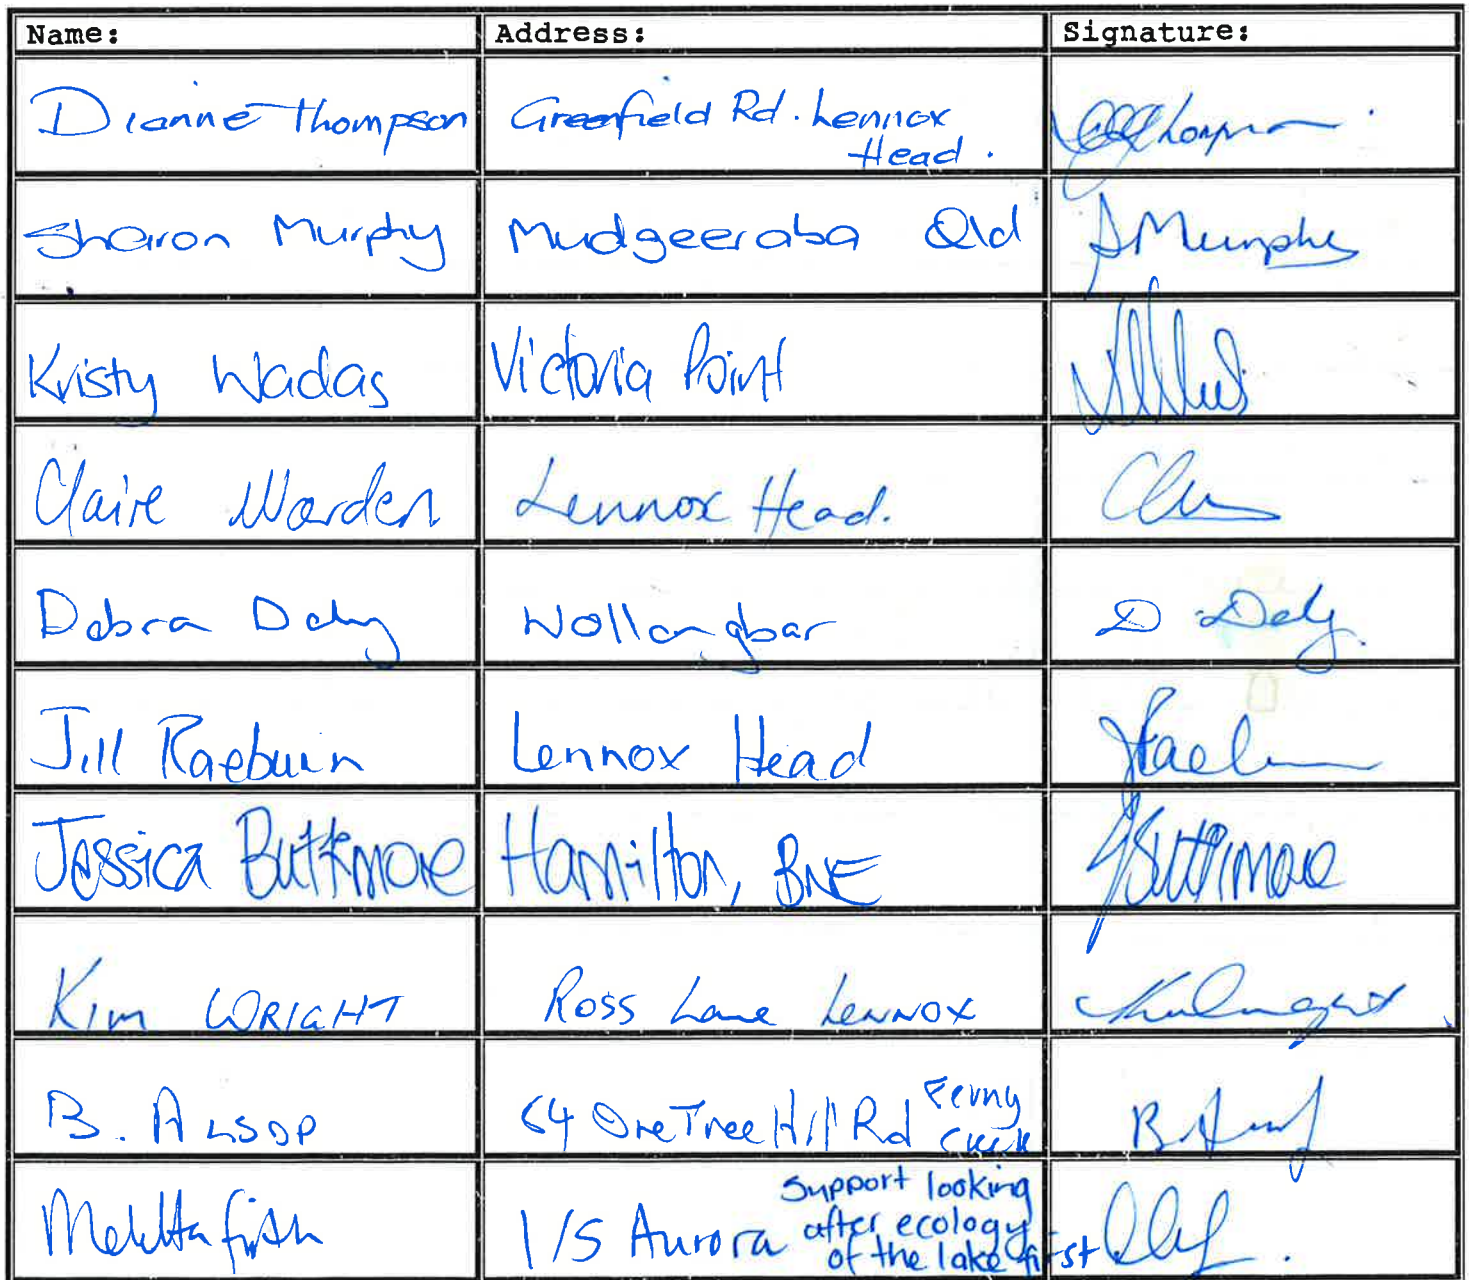 Name: Address: Signature:
Dianne Thompson Greenfield Rd. Lennox
Head.
Sharon Murphy Mudgeeraba Qld SMurphy
Kristy Wadas Victoria Point
Claire Warden Lennox Head.
Debra Daly Wollongbar D Daly
Jill Raeburn Lennox Head
Jessica Buttimore Hamilton, BNE JButtimore
Kim WRIGHT Ross Lane Lennox
B. ALSOP 64 One Tree Hill Rd Ferny
Creek
1/5 Aurora
Support looking
after ecology
of the lake first